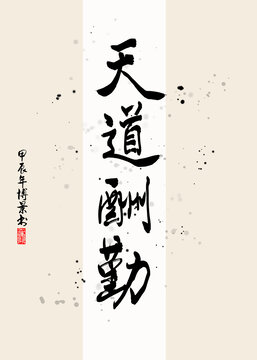 天道酬勤
甲辰年博景书